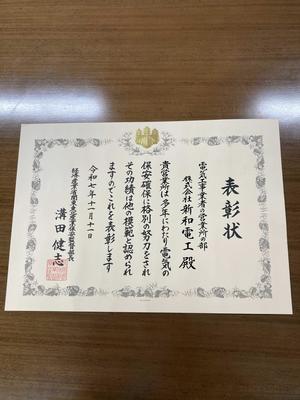 表彰状
電気工事業者の営業所の部
株式会社新和電工殿
貴営業所は多年にわたり電気の
保安確保に格別の努力をされ
その功績は他の模範と認められ
ますのでこれを表彰します
令和七年十一月十一日
経済産業省関東東北産業保安監督部長
溝田健志